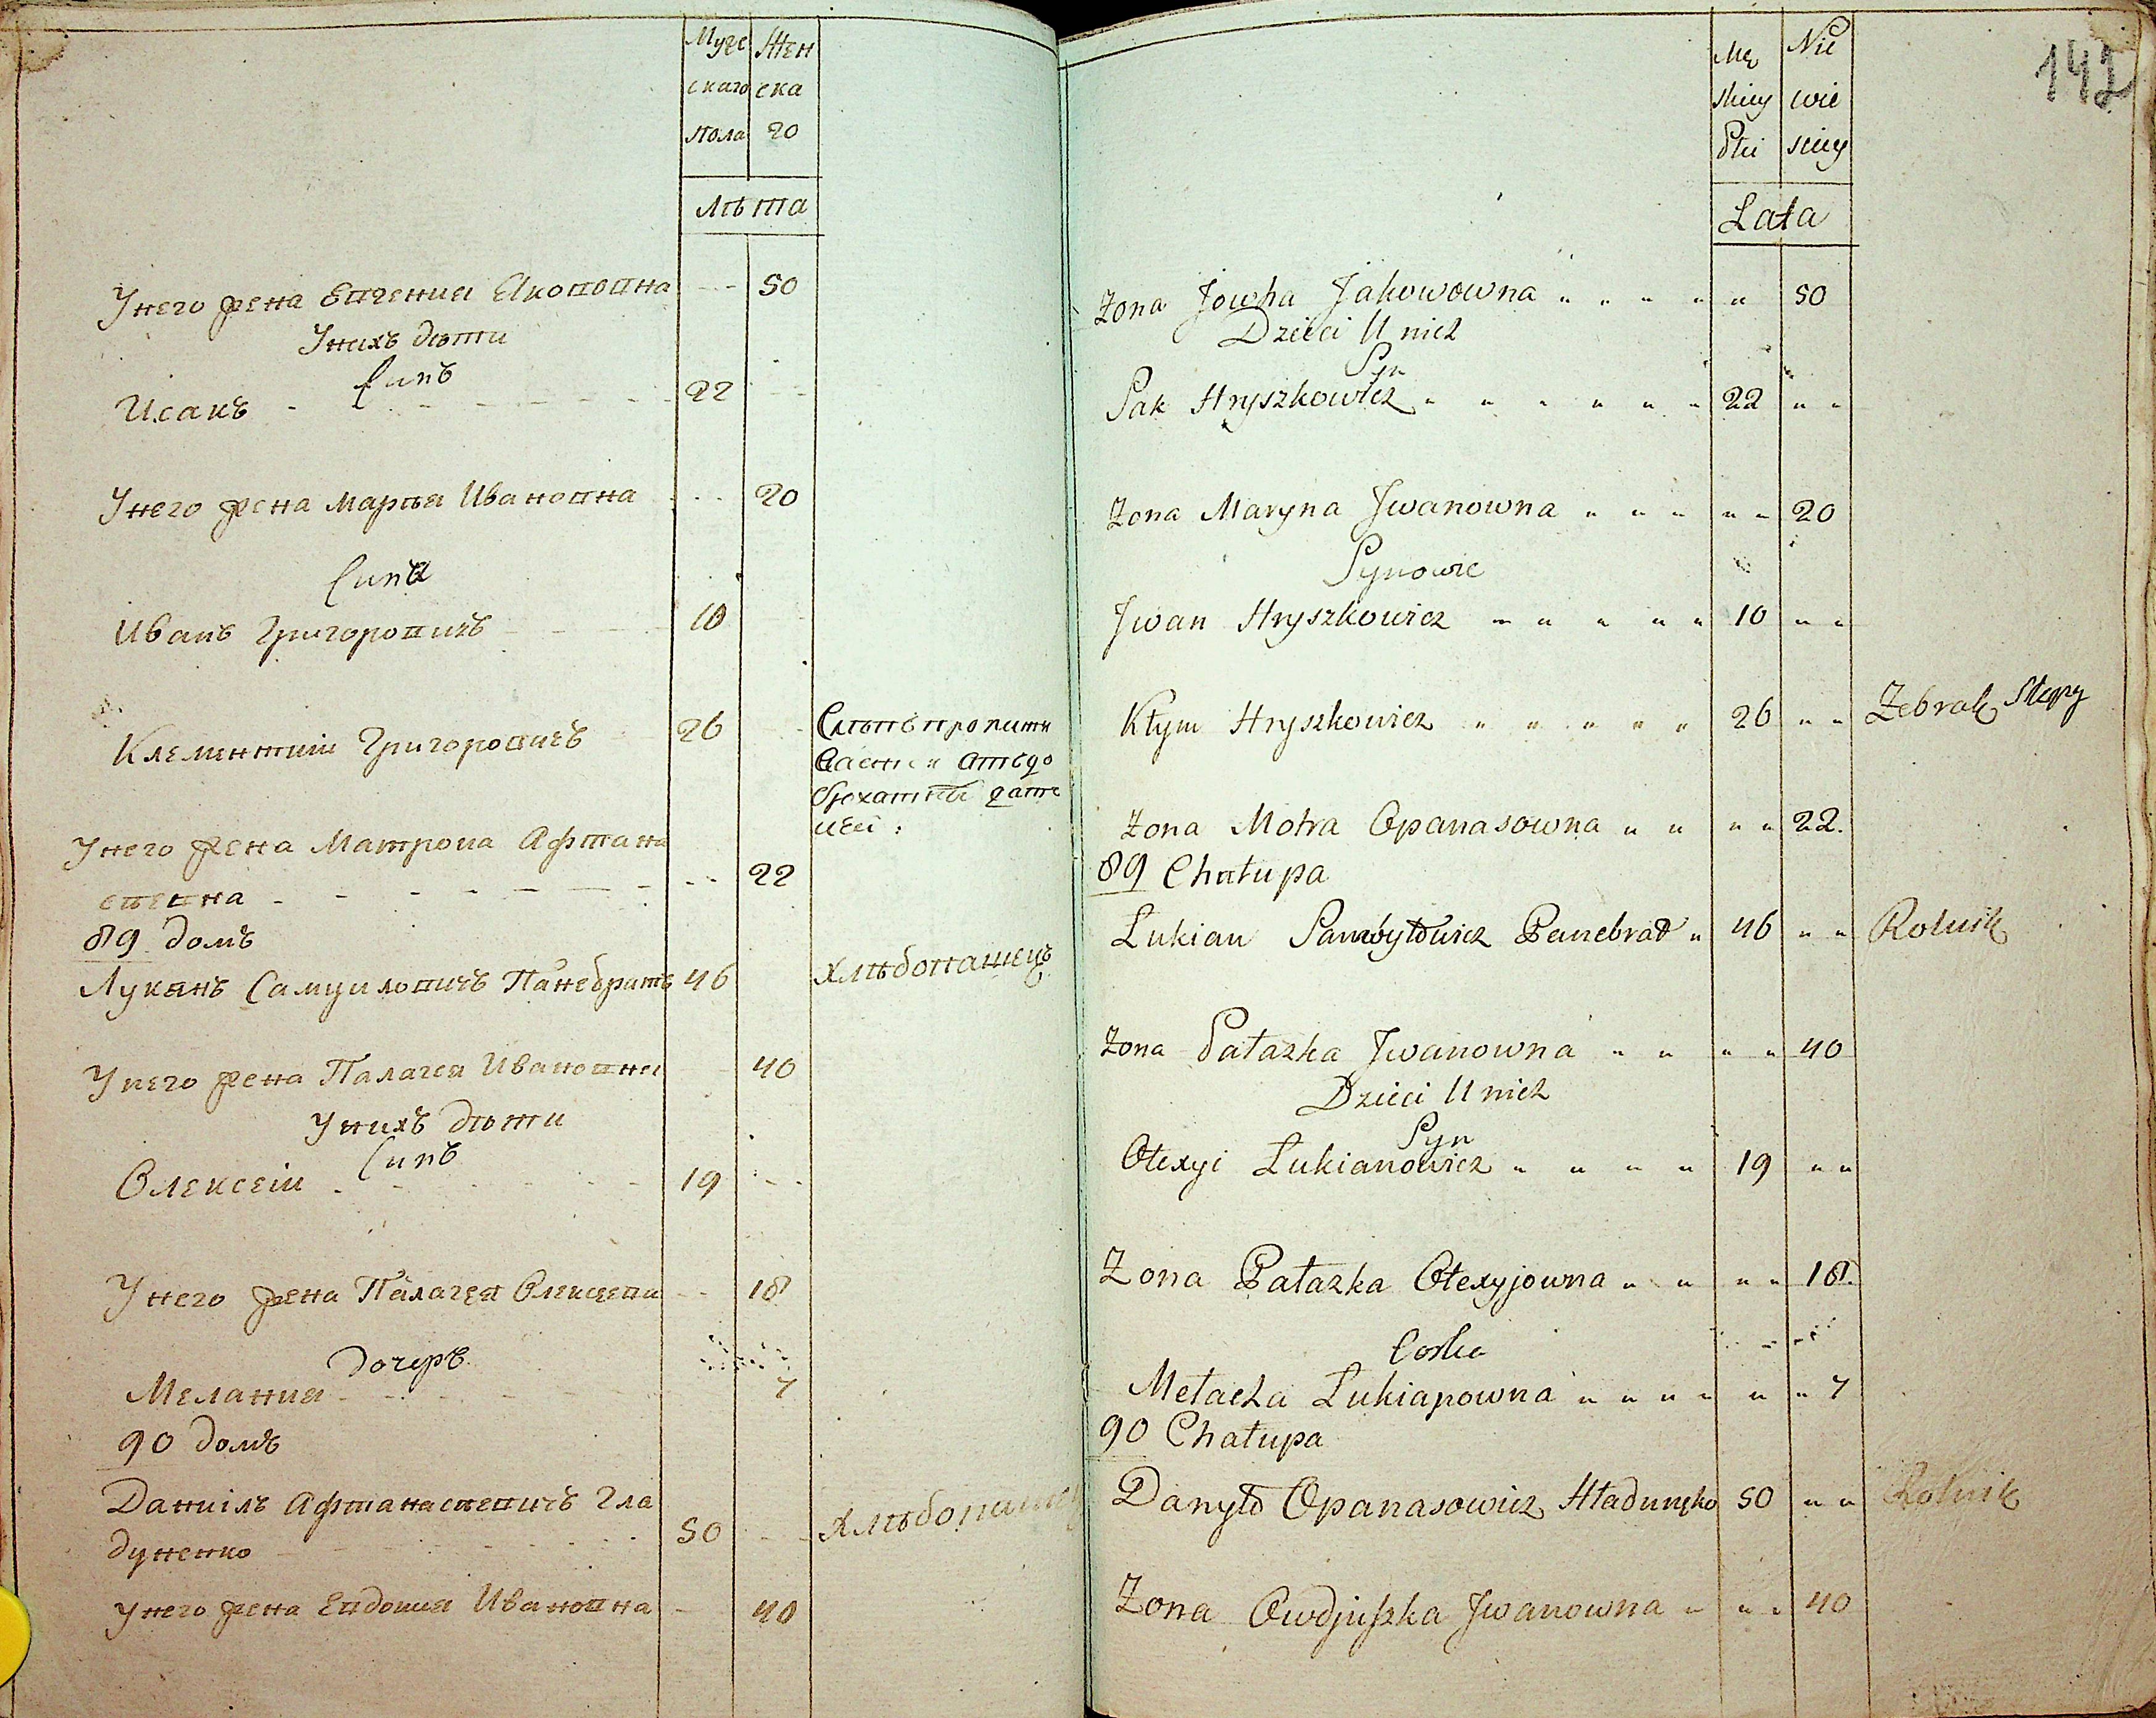 Мужс Жен
скаго ска
пола го
лѣта
У него жена Евгения Якововна -- 50
У нихъ дѣти
Синъ
Исакъ - - - - - - 22 --
У него жена Марья Ивановна --- 20
Синъ
Иванъ Григоровичъ 10
Клеминтий Григоровичъ 26
У него жена Матрона Афтана
сиевна - - - - - - -- 22
89 домъ
Лукянъ Самуиловичъ Панебратъ 46 хлѣбопашецъ
У него жена Палагея Ивановна 40
У нихъ дѣти
Синъ
Олексеій - - - - - 19 --
У него жена Палагея Олексеевн -- 18
дочеръ
Мелания - - - - - 7
90 домъ
Даниілъ Афтанасиевичъ Гла
дуненко 50 -- хлѣбопашец
У него жена Евдокия Ивановна - 40
142
Mę Nie
skiey wie
Płci sciey
Lata
Żona Jowha Jakowowna " " " " " 50
Dzieci U nich
Syn
Sak Hryszkowicz " " " " " " 22 " "
Żona Maryna Jwanowna " " " " " 20
Synowie
Jwan Hryszkowicz " " " " " 10 " "
Kłym Hryszkowicz " " " " " 26 " " Żebrak Slepy
Żona Motra Opanasowna " " " " 22.
89 Chałupa
Łukian Samoyłowicz Panebrad " 46 " " Rolnik
Żona Pałazka Jwanowna " " " " 40
Dzieci U nich
Syn
Ołexyi Łukianowicz " " " " 19 " "
Żona Pałazka Ołexyjowna " " " " 18.
Corka
Mełacha Łukianowna " " " " " " 7
90 Chałupa
Danyło Opanasowicz Hładunenko 50 " " Rolnik
Żona Owdjuszka Jwanowna " " " 40